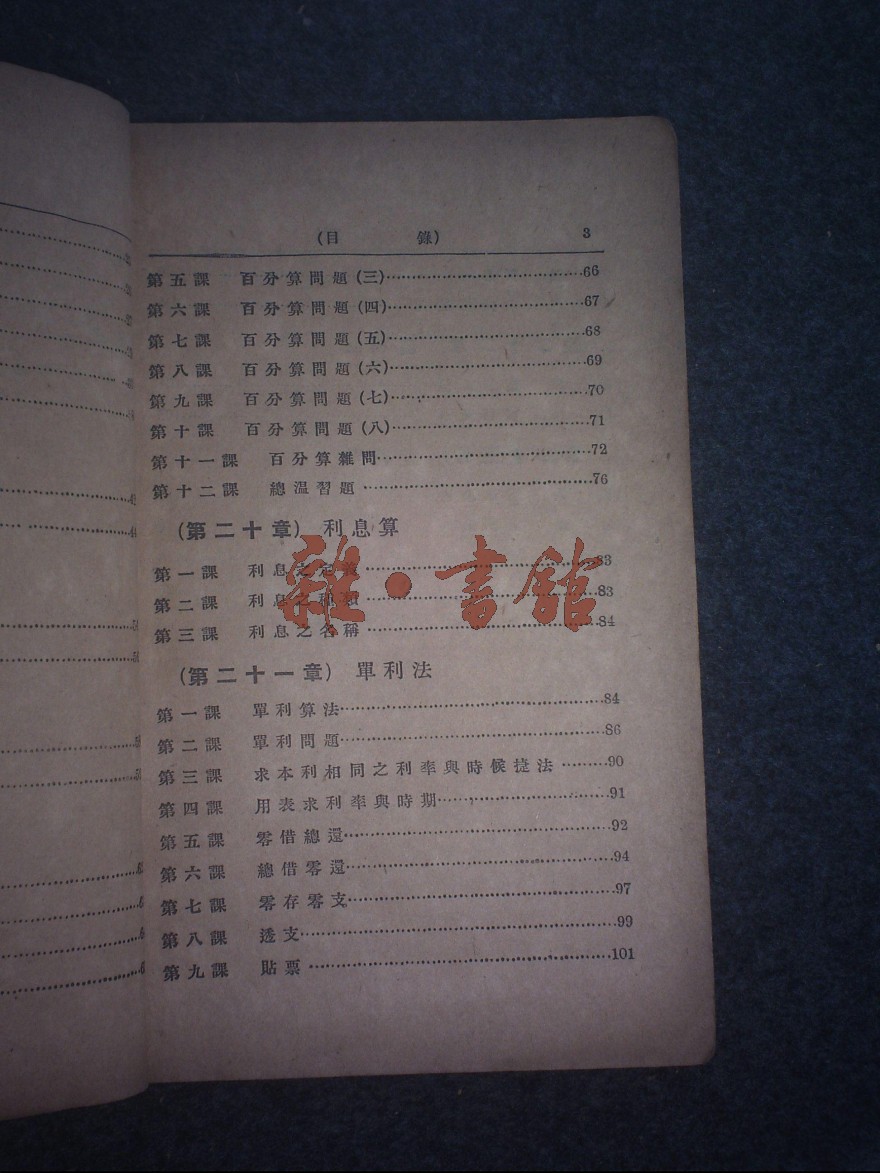 (目　錄)　3
第五課　百分算問題(三)……66
第六課　百分算問題(四)……67
第七課　百分算問題(五)……68
第八課　百分算問題(六)……69
第九課　百分算問題(七)……70
第十課　百分算問題(八)……71
第十一課　百分算雜問……72
第十二課　總溫習題……76
(第二十章)　利息算
第一課　利息之定義……83
第二課　利息之種類……83
第三課　利息之名稱……84
雜·書館
(第二十一章)　單利法
第一課　單利算法……84
第二課　單利問題……86
第三課　求本利相同之利率與時候捷法……90
第四課　用表求利率與時期……91
第五課　零借總還……92
第六課　總借零還……94
第七課　零存零支……97
第八課　透支……99
第九課　貼票……101